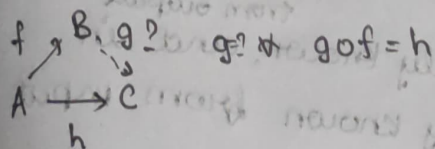 f B g?
g=? g o f = h
A → C
h